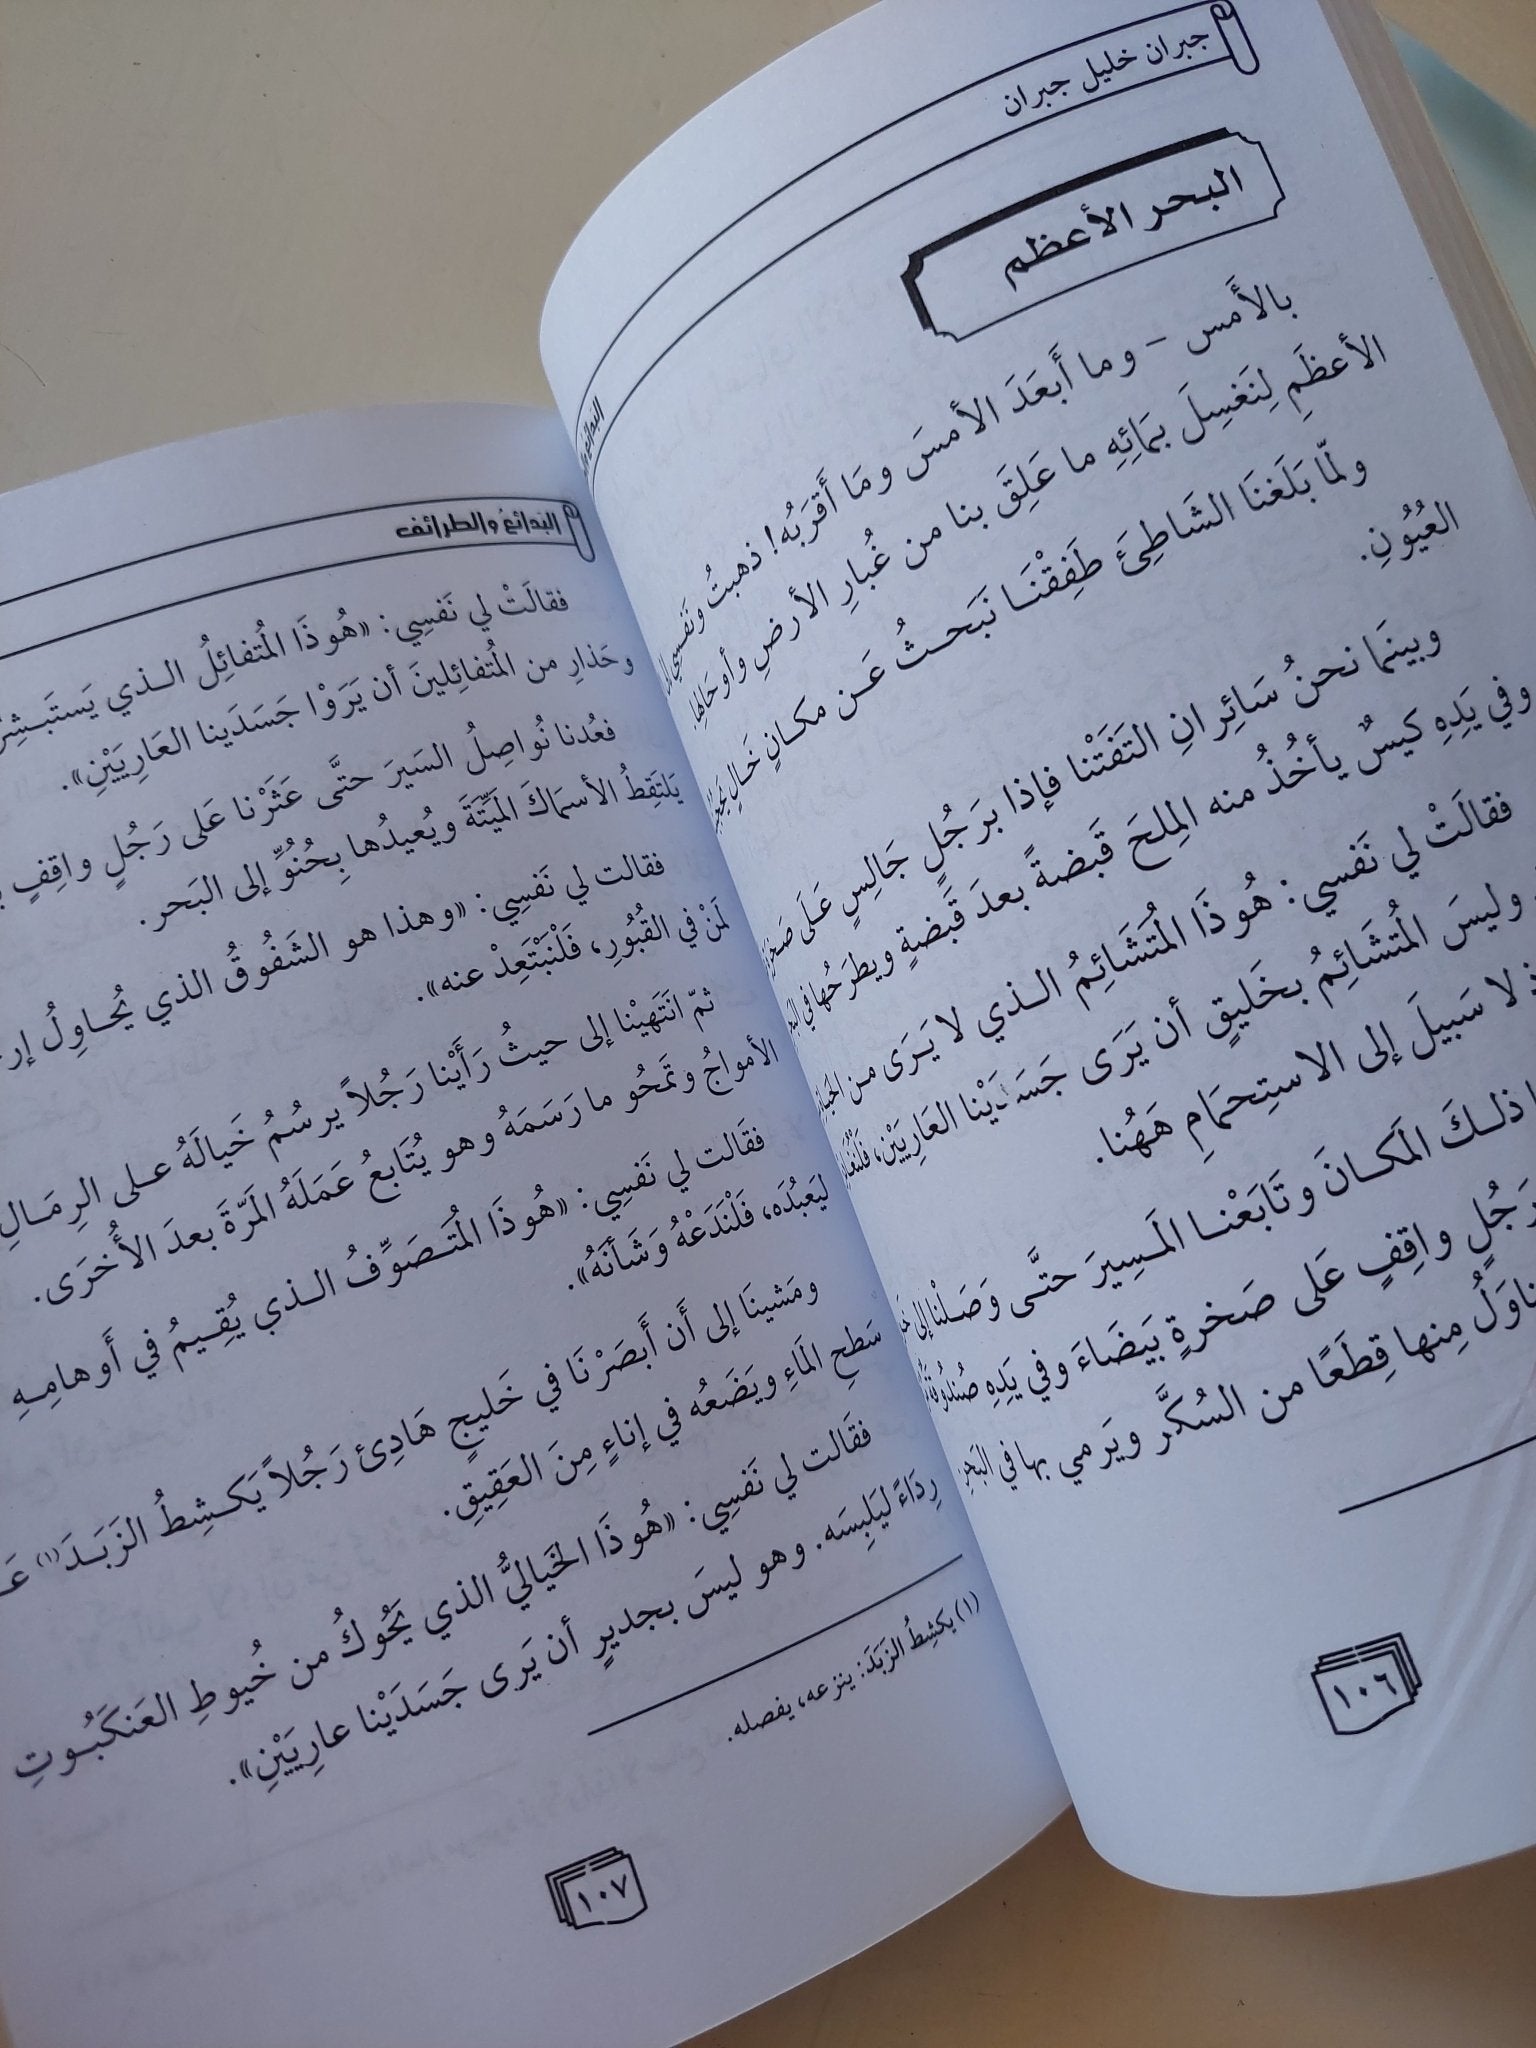 جبران خليل جبران
البحر الأعظم
بالأَمس – وما أَبعَدَ الأمسَ ومَا أَقرَبُه! ذهبتُ ونَفسِي
الأعظَمِ لِنَغسِلَ بمَائِهِ ما عَلِقَ بنا من غُبارِ الأرضِ وأوحَالِها.
ولمّا بَلَغنَا الشَاطِئَ طَفِقْنَا نَبَحثُ عَن مكانٍ خَالٍ
العُيُونِ.
وبينَما نحنُ سَائِرانِ التَفَتْنا فإذا بَرَجُلٍ جَالِسٍ عَلَى
وفي يَدِهِ كيسٌ يأخُذُ منه المِلحَ قَبضةً بعدَ قَبضةٍ ويطرَحُها في
فقالَتْ لي نَفسي: هُوذَا المُتَشَائِمُ الذي لا يَرَى من
وليسَ المُتشَائِمُ بخَليقٍ أن يَرَى جَسَدَيْنا العَارِيَيْن،
لا سَبيلَ إلى الاستِحمَامِ هَهُنا.
ذلكَ المَكانَ وتَابَعْنا المَسِيرَ حتَّى وَصَلْنا إلى
واقِفٍ عَلَى صَخرةٍ بَيضَاءَ وفي يَدِهِ
مِنها قِطَعًا من السُكَّر ويَرمي بها في البَحرِ
١٠٦
البدائع والطرائف
فقالَتْ لي نَفسِي: «هُوذَا المُتفائِلُ الذي
وحَذارِ من المُتفائِلينَ أن يَرَوْا جَسَدَينا العَارِيَيْنِ».
فعُدنا نُواصِلُ السَيرَ حتَّى عَثَرْنا عَلى رَجُلٍ واقِفٍ
يَلتَقِطُ الأسمَاكَ المَيِّتَةَ ويُعيدُها بِحُنُوٍّ إلى البَحر.
فقالت لي نَفسِي: «وهذا هو الشَفُوقُ الذي يُحاوِلُ
لمَنْ في القُبُورِ، فَلْنَبْتَعِدْ عنه».
ثمّ انَتَهَيْنا إلى حيثُ رَأَيْنا رَجُلاً يرسُمُ خَيالَهُ على الرِمَالِ
الأمواجُ وتَمحُو ما رَسَمَهُ وهو يُتَابعُ عَمَلَهُ المَرّةَ بعدَ الأُخرَى.
فقَالت لي نَفسِي: «هُوذَا المُتَصَوِّفُ الذي يُقِيمُ في أَوهامِهِ
ليَعبُدَه، فَلْنَدَعْهُ وَشَأنَهُ».
ومَشينَا إلى أَن أَبصَرْنَا في خَليجٍ هَادِئ رَجُلاً يَكشِطُ الزَبَدَ(١)
سَطحِ المَاءِ ويَضَعُه في إناءٍ مِنَ العَقِيقِ.
فقَالت لي نَفسِي: «هُوذَا الخَياليُّ الذي يَحُوكُ من خُيوطِ العَنكَبُوتِ
رِدَاءً ليَلبِسَه. وهو ليسَ بجديرٍ أن يَرى جَسَدَيْنا عارِيَيْنِ».
(١) يكشِطُ الزَبَدَ: ينزعه، يفصله.
١٠٧